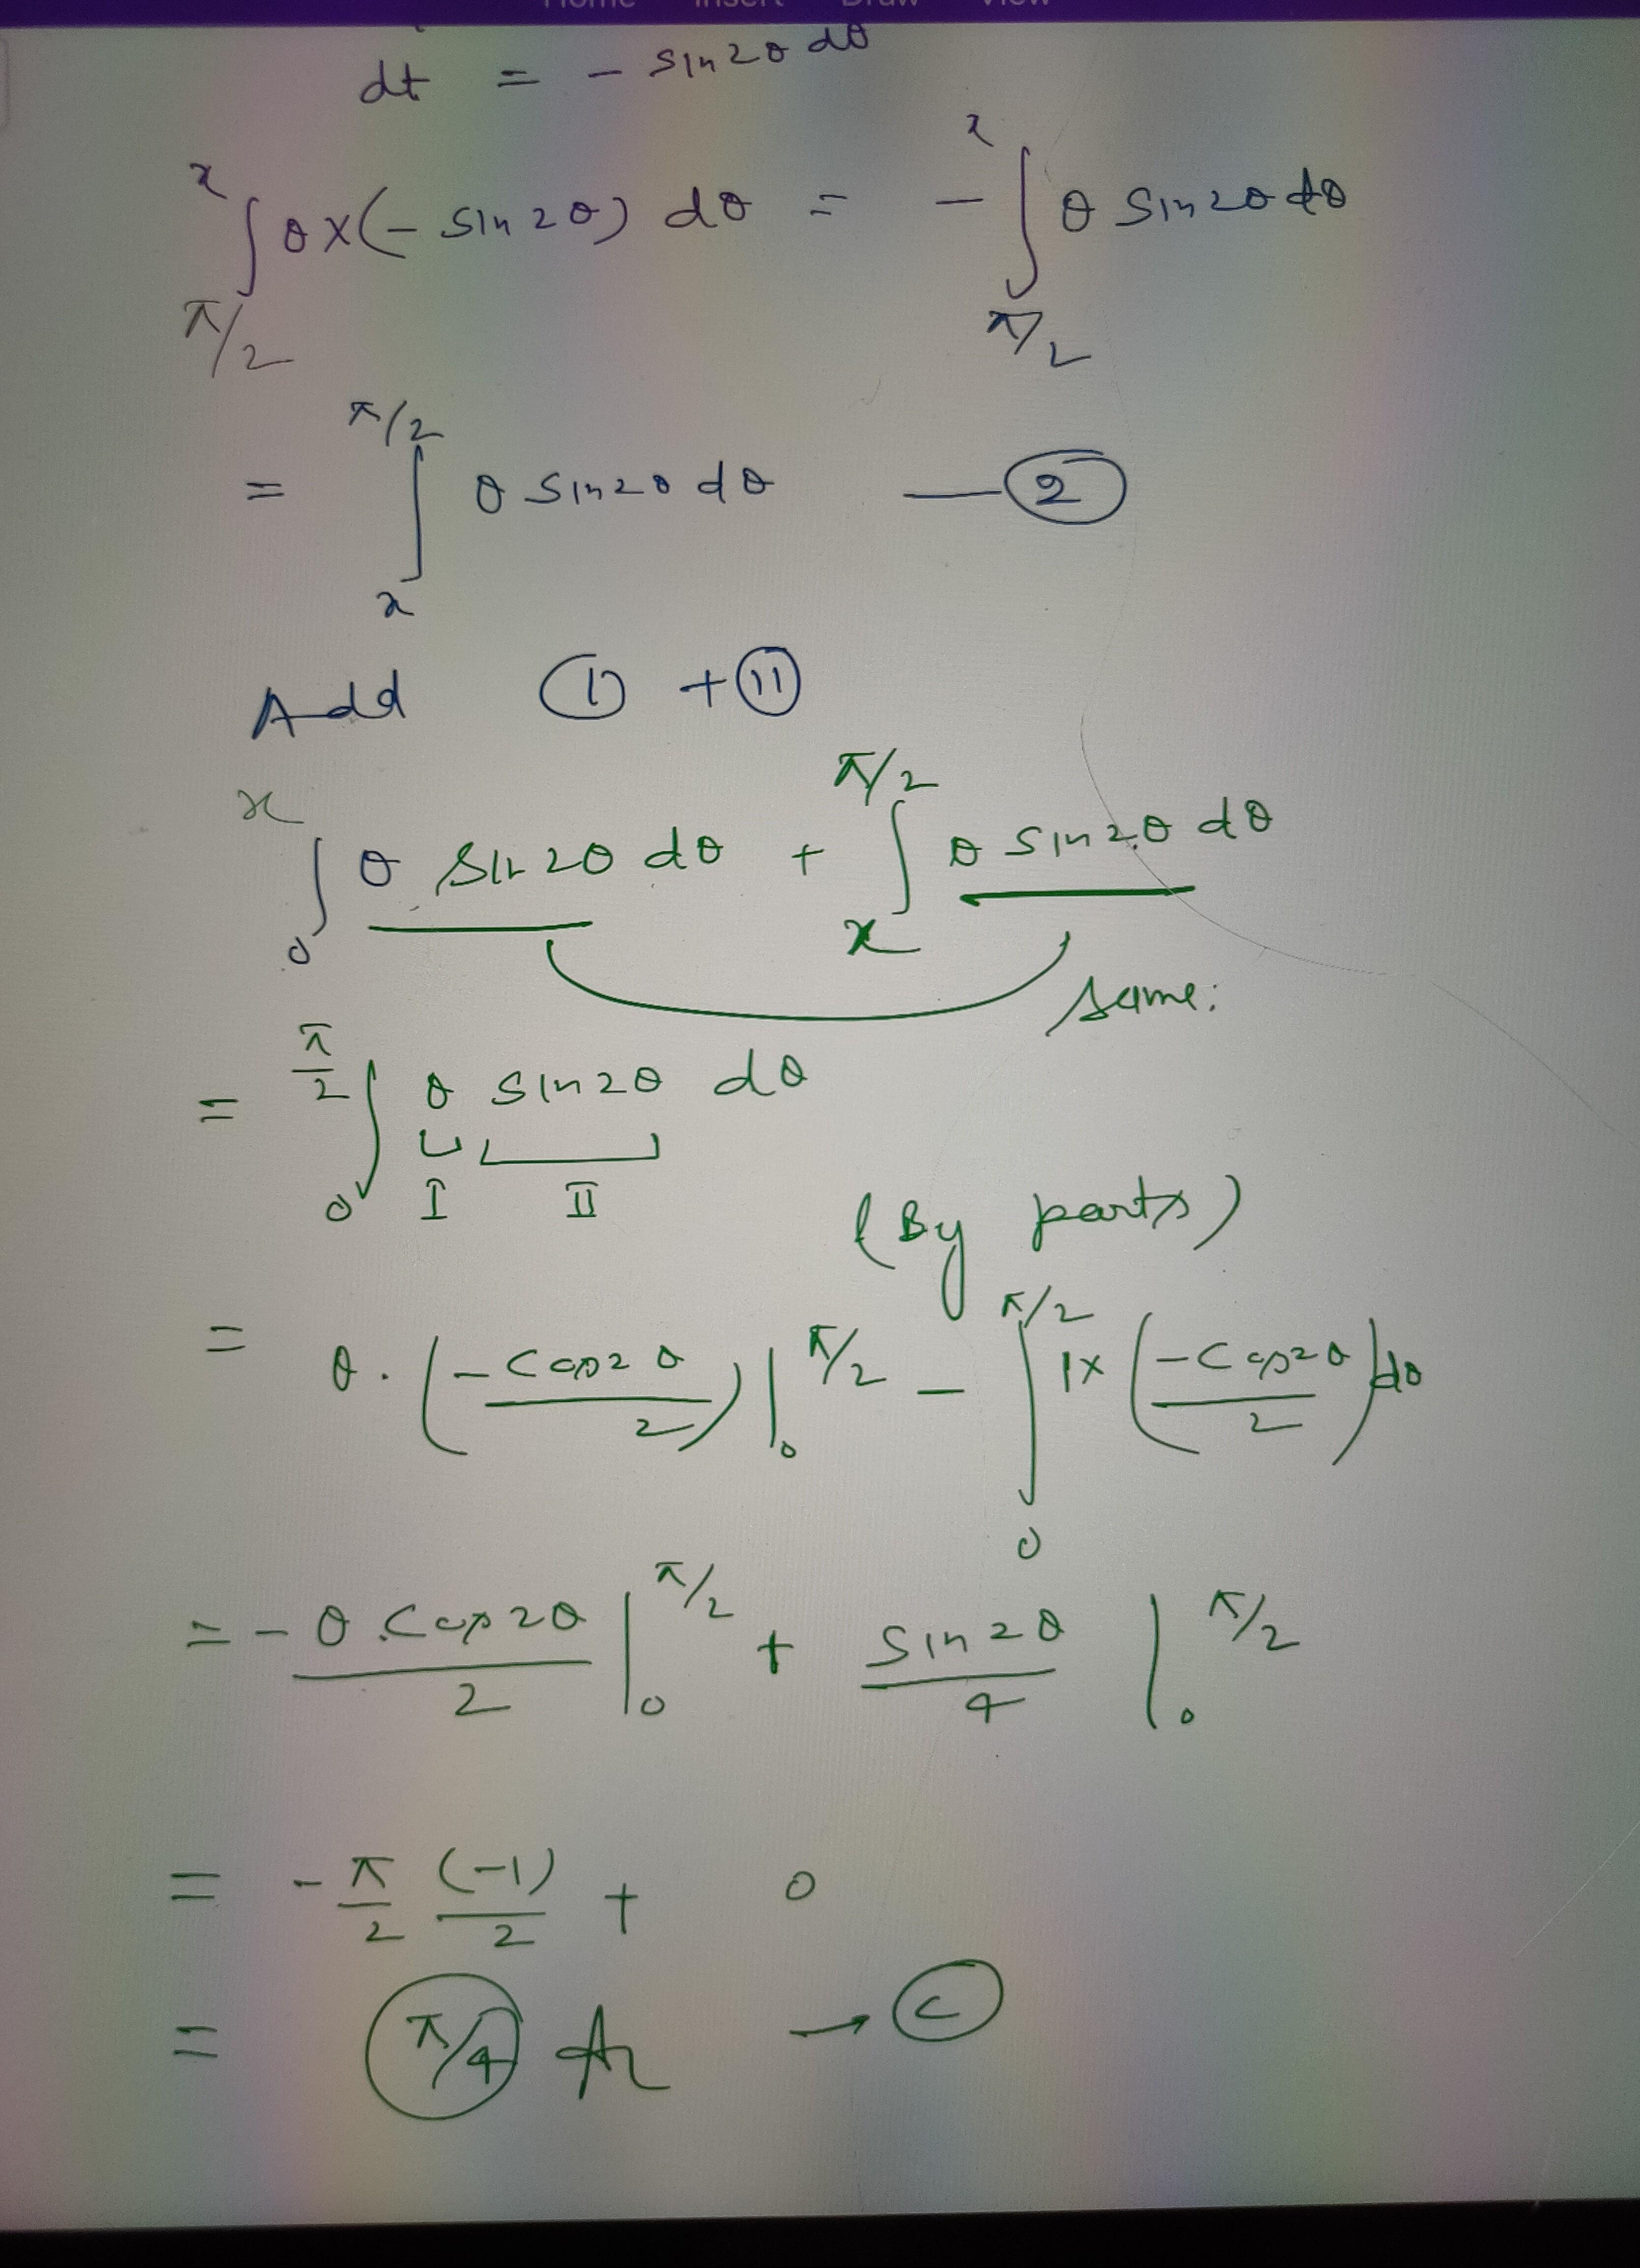 Home Insert Draw View
dt = - sin2θ dθ
x∫π/2 θ×(- sin2θ) dθ = - x∫π/2 θ sin2θ dθ
= π/2∫x θ sin2θ dθ — ②
Add ① + ⑪
x∫0 θ sin2θ dθ + π/2∫x θ sin2θ dθ
same:
= π/2∫0 θ sin2θ dθ
I II
(By parts)
= θ.(-cos2θ/2)|0 π/2 - π/2∫0 1×(-cos2θ/2)dθ
= - θ.cos2θ/2 |0 π/2 + sin2θ/4 |0 π/2
= - π/2 (-1)/2 + 0
= π/4 A → C